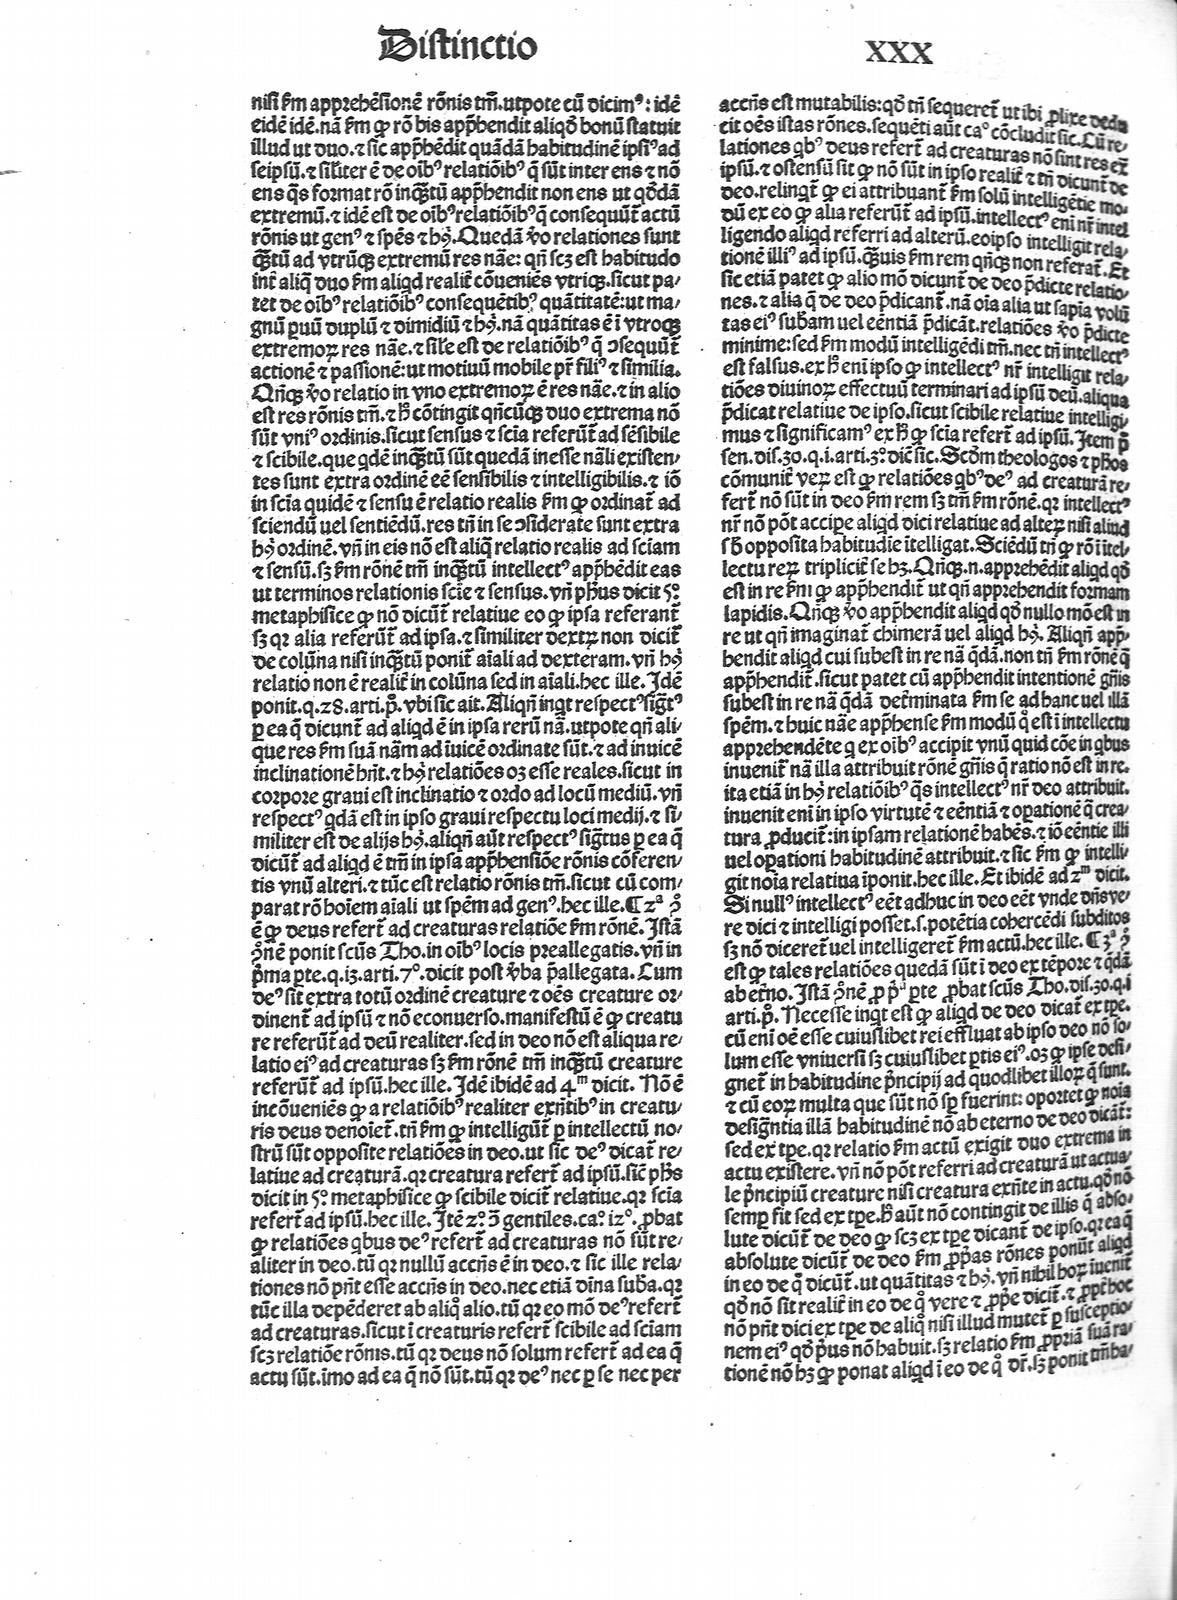 Distinctio
XXX
nisi ẜm apprehēsionē rōnis tm̄.utpote cū dicimꝰ: idē
eidē idē.nā ẜm ꝙ rō bis app̄hendit aliqd̄ bonū statuit
illud ut duo.⁊ sic app̄hēdit quādā habitudinē ipsiꝰ ad
seipsū.⁊ sil̄iter ē de oībꝰ relatiōibꝰ q̄ sūt inter ens ⁊ nō
ens q̄s format rō inqȝtū app̄hendit non ens ut qd̄dā
extremū.⁊ idē est de oībꝰ relatiōibꝰ q̄ consequūt̄ actū
rōnis ut genꝰ ⁊ spēs ⁊ hꝰ.Quedā ꝟo relationes sunt
qȝtū ad vtrūqȝ extremū res nāe: qn̄ scȝ est habitudo
int̄ aliq̄ duo ẜm aliqd realit̄ cōueniēs vtriqȝ.sicut pa⸗
tet de oībꝰ relatiōibꝰ consequētibꝰ quātitatē:ut ma⸗
gnū ꝑuū duplū ⁊ dimidiū ⁊ hꝰ.nā quātitas ē ī vtroqȝ
extremoꝝ res nāe.⁊ sil̄e est de relatiōibꝰ q̄ ↄsequūt̄
actionē ⁊ passionē:ut motiuū mobile pr̄ filiꝰ ⁊ similia.
Qn̄qȝ ꝟo relatio in vno extremoꝝ ē res nāe.⁊ in alio
est res rōnis tm̄.⁊ h̄ cōtingit qn̄cūqȝ duo extrema nō
sūt vniꝰ ordinis.sicut sensus ⁊ scīa referūt̄ ad sēsibile
⁊ scibile.que qdē inqȝtū sūt quedā inesse nāli existen⸗
tes sunt extra ordinē eē sensibilis ⁊ intelligibilis.⁊ iō
in scīa quidē ⁊ sensu ē relatio realis ẜm ꝙ ordinat̄ ad
sciendū uel sentiēdū.res tn̄ in se ↄsiderate sunt extra
hꝰ ordinē.vn̄ in eis nō est aliq̄ relatio realis ad sciam
⁊ sensū.sȝ ẜm rōnē tm̄ inqȝtū intellectꝰ app̄hēdit eas
ut terminos relationis scīe ⁊ sensus.vn̄ ph̄us dicit 5°
metaphisice ꝙ nō dicūt̄ relatiue eo ꝙ ipsa referant̄
sȝ qꝛ alia referūt̄ ad ipsa.⁊ similiter dextꝝ non dicit̄
de colūna nisi inqȝtū ponit̄ aīali ad dexteram.vn̄ hꝰ
relatio non ē realit̄ in colūna sed in aīali.hec ille. Idē
ponit.q.28.arti.p̄.vbi sic ait. Aliqn̄ inqt respectꝰ sigt̄ꝰ
ꝑ ea q̄ dicunt̄ ad aliqd ē in ipsa rerū nā.utpote qn̄ ali⸗
que res ẜm suā nām ad īuicē ordinate sūt.⁊ ad inuicē
inclinationē hn̄t.⁊ hꝰ relatiōes oȝ esse reales.sicut in
corpore graui est inclinatio ⁊ ordo ad locū mediū.vn̄
respectꝰ qdā est in ipso graui respectu loci medij.⁊ si⸗
militer est de alijs hꝰ.aliqn̄ aūt respectꝰ sigt̄us ꝑ ea q̄
dicūt̄ ad aliqd ē tm̄ in ipsa app̄hensiōe rōnis cōferen⸗
tis vnū alteri.⁊ tūc est relatio rōnis tm̄.sicut cū com⸗
parat rō hoīem aīali ut spēm ad genꝰ.hec ille.¶ 2ª ↄ̄
ē ꝙ deus refert̄ ad creaturas relatiōe ẜm rōnē. Istā
ↄ̄nē ponit scūs Tho.in oībꝰ locis preallegatis.vn̄ in
p̄ma ꝑte.q.13.arti.7°.dicit post ꝟba p̄allegata. Cum
deꝰ sit extra totū ordinē creature ⁊ oēs creature or⸗
dinent̄ ad ipsū ⁊ nō econuerso.manifestū ē ꝙ creatu
re referūt̄ ad deū realiter.sed in deo nō est aliqua re⸗
latio eiꝰ ad creaturas sȝ ẜm rōnē tm̄ inqȝtū creature
referūt̄ ad ipsū.hec ille. Idē ibidē ad 4ᵐ dicit. Nō ē
incōueniēs ꝙ a relatiōibꝰ realiter exn̄tibꝰ in creatu⸗
ris deus denoīet̄.tn̄ ẜm ꝙ intelligūt̄ ꝑ intellectū no⸗
strū sūt opposite relatiōes in deo.ut sic deꝰ dicat̄ re⸗
latiue ad creaturā.qꝛ creatura refert̄ ad ipsū.sic̄ ph̄s
dicit in 5° metaphisice ꝙ scibile dicit̄ relatiue.qꝛ scīa
refert̄ ad ipsū.hec ille. Itē 2° ↄ̄ gentiles.ca° 12°.ꝓbat
ꝙ relatiōes qbus deꝰ refert̄ ad creaturas nō sūt re⸗
aliter in deo.tū qꝛ nullū accn̄s ē in deo.⁊ sic ille rela⸗
tiones nō pn̄t esse accn̄s in deo.nec etiā dīna sub̄a.qꝛ
tūc illa depēderet ab aliq̄ alio.tū qꝛ eo mō deꝰ refert̄
ad creaturas.sicut ī creaturis refert̄ scibile ad sciam
scȝ relatiōe rōnis.tū qꝛ deus nō solum refert̄ ad ea q̄
actu sūt.imo ad ea q̄ nō sūt.tū qꝛ deꝰ nec ꝑ se nec per
accn̄s est mutabilis:qd̄ tn̄ sequeret̄ ut ibi ꝓlixe dedu
cit oēs istas rōnes.sequēti aūt ca° cōcludit sic. Cū re⸗
lationes qbꝰ deus refert̄ ad creaturas nō sint res ex̄
ipsū.⁊ ostensū sit ꝙ nō sūt in ipso realit̄ ⁊ tn̄ dicunt̄ de
deo.relinqt̄ ꝙ ei attribuant̄ ẜm solū intelligētie mo⸗
dū ex eo ꝙ alia referūt̄ ad ipsū.intellectꝰ enī nr̄ intel
ligendo aliqd referri ad alterū.eoipso intelligit rela⸗
tionē illiꝰ ad ipsū.qȝuis ẜm rem qn̄qȝ non referat̄. Et
sic etiā patet ꝙ alio mō dicunt̄ de deo p̄dicte relatio⸗
nes.⁊ alia q̄ de deo p̄dicant̄.nā oīa alia ut sapīa volū
tas eiꝰ sub̄am uel eēntiā p̄dicāt.relatiōes ꝟo p̄dicte
minime:sed ẜm modū intelligēdi tm̄.nec tn̄ intellectꝰ
est falsus.ex h̄ enī ipso ꝙ intellectꝰ nr̄ intelligit rela⸗
tiōes diuinoꝝ effectuū terminari ad ipsū deū.aliqua
p̄dicat relatiue de ipso.sicut scibile relatiue intelligi⸗
mus ⁊ significamꝰ ex h̄ ꝙ scīa refert̄ ad ipsū. Item p̄
sen.dis.30.q.1.arti.3° dic̄ sic. Scd̄m theologos ⁊ ph̄os
cōmunit̄ veꝝ est ꝙ relatiōes qbꝰ deꝰ ad creaturā re⸗
fert̄ nō sūt in deo ẜm rem sȝ tm̄ ẜm rōnē.qꝛ intellectꝰ
nr̄ nō pōt accipe aliqd dici relatiue ad alteꝝ nisi aliud
sb̄ opposita habitudīe ītelligat. Sciēdū tn̄ ꝙ rō ī itel⸗
lectu reꝝ triplicit̄ se hȝ. Qn̄qȝ.n.apprehēdit aliqd qd̄
est in re ẜm ꝙ app̄hendit̄ ut qn̄ apprehendit formam
lapidis. Qn̄qȝ ꝟo app̄hendit aliqd qd̄ nullo mō est in
re ut qn̄ imaginat̄ chimerā uel aliqd hꝰ. Aliqn̄ app̄⸗
hendit aliqd cui subest in re nā qdā.non tn̄ ẜm rōnē q̄
app̄hendit̄.sicut patet cū app̄hendit intentionē gn̄is
subest in re nā qdā det̄minata ẜm se ad hanc uel illā
spēm.⁊ huic nāe app̄hense ẜm modū q̄ est ī intellectu
apprehendēte q ex oībꝰ accipit vnū quid cōe in qbus
inuenit̄ nā illa attribuit rōnē gn̄is q̄ ratio nō est in re.
ita etiā in hꝰ relatiōibꝰ q̄s intellectꝰ nr̄ deo attribuit.
inuenit enī in ipso virtutē ⁊ eēntiā ⁊ opationē q̄ crea⸗
tura ꝓducit̄:in ipsam relationē habēs.⁊ iō eēntie illi
uel opationi habitudinē attribuit.⁊ sic ẜm ꝙ intelli⸗
git noīa relatiua īponit.hec ille. Et ibidē ad 2ᵐ dicit.
Si nullꝰ intellectꝰ eēt adhuc in deo eēt vnde dn̄s ve⸗
re dici ⁊ intelligi posset.s.potētia cohercēdi subditos
sȝ nō diceret̄ uel intelligeret̄ ẜm actū.hec ille. ¶ 3ª ↄ̄
est ꝙ tales relatiōes quedā sūt ī deo ex tēpore ⁊ qdā
ab et̄no. Istā ↄ̄nē ꝓ p̄ª ꝑte ꝓbat scūs Tho.dis.30.q.1
arti.p̄. Necesse inqt est ꝙ aliqd de deo dicat̄ ex tpe.
cū enī oē esse cuiuslibet rei effluat ab ipso deo nō so⸗
lum esse vniuersi sȝ cuiuslibet ꝑtis eiꝰ.oȝ ꝙ ipse desi⸗
gnet̄ in habitudine p̄ncipij ad quodlibet illoꝝ q̄ sunt.
⁊ cū eoꝝ multa que sūt nō sꝑ fuerint: oportet ꝙ noīa
desigñtia illā habitudinē nō ab eterno de deo dicāt̄:
sed ex tpe.qꝛ relatio ẜm actū exigit duo extrema in
actu existere.vn̄ nō pōt referri ad creaturā ut actua⸗
le p̄ncipiū creature nisi creatura exn̄te in actu.qd̄ nō
semꝑ fit sed ex tpe.h̄ aūt nō contingit de illis q̄ abso⸗
lute dicūt̄ de deo ꝙ scȝ ex tpe dicant̄ de ipso.qꝛ ea q̄
absolute dicūt̄ de deo ẜm ꝓp̄as rōnes ponūt aliqd
in eo de q̄ dicūt̄.ut quātitas ⁊ hꝰ.vn̄ nihil hoꝝ iuenit̄
qd̄ nō sit realit̄ in eo de q̄ vere ⁊ ꝓp̄e dicit̄.⁊ ꝓpt̄ hoc
nō pn̄t dici ex tpe de aliq̄ nisi illud mutet̄ ꝑ susceptio⸗
nem eiꝰ qd̄ p̄us nō habuit.sȝ relatio ẜm ꝓpriā suā ra⸗
tionē nō hȝ ꝙ ponat aliqd ī eo de q̄ dr̄.sȝ ponit tm̄ ha⸗